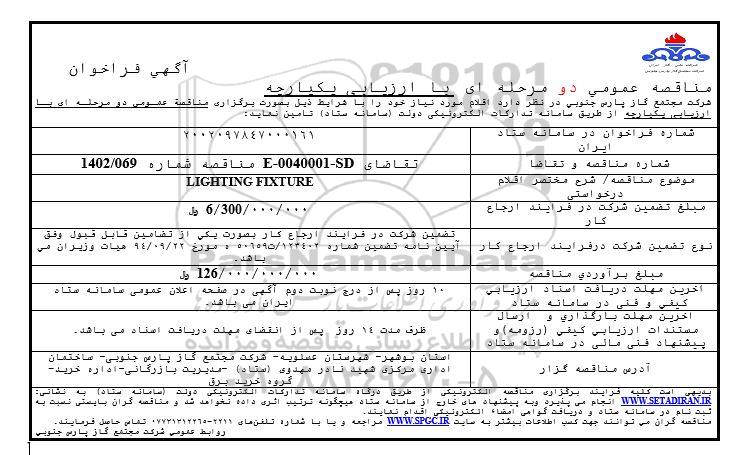 آگهي فراخوان
شرکت ملی گاز ایران
شرکت مجتمع گاز پارس جنوبی
مناقصه عمومي دو مرحله ای با ارزیابی یکپارچه
شرکت مجتمع گاز پارس جنوبي در نظر دارد اقلام مورد نیاز خود را با شرایط ذیل بصورت برگزاری مناقصة عمومی دو مرحله ای با
ارزیابی یکپارچه از طریق سامانه تدارکات الکترونیکی دولت (سامانه ستاد) تامین نماید:
شماره فراخوان در سامانه ستاد ایران
۲۰۰۲۰۹۷۸۴۷۰۰۰۱۶۱
شماره مناقصه و تقاضا
تقاضای E-0040001-SD مناقصه شماره 1402/069
موضوع مناقصه/ شرح مختصر اقلام درخواستي
LIGHTING FIXTURE
مبلغ تضمین شرکت در فرایند ارجاع کار
6/300/۰۰۰/۰۰۰ ریال
نوع تضمین شرکت درفرایند ارجاع کار
تضمین شرکت در فرایند ارجاع کار بصورت یکي از تضامین قابل قبول وفق
آیین نامه تضمین شماره ۱۲۳۴۰۲/ت۵۰۶۵۹ ه مورخ ۹۴/۰۹/۲۲ هیات وزیران می
باشد.
مبلغ برآوردي مناقصه
126/۰۰۰/۰۰۰/۰۰۰ ریال
آخرین مهلت دریافت اسناد ارزیابی
کیفي و فني در سامانه ستاد
۱۰ روز پس از درج نوبت دوم آگهی در صفحه اعلان عمومی سامانه ستاد
ایران می باشد.
آخرین مهلت بارگذاري و ارسال
مستندات ارزیابی کیفي (رزومه)و
پیشنهاد فنی مالی در سامانه ستاد
ظرف مدت ۱۴ روز پس از انقضای مهلت دریافت اسناد می باشد.
آدرس مناقصه گزار
استان بوشهر- شهرستان عسلویه- شرکت مجتمع گاز پارس جنوبی- ساختمان
اداری مرکزی شهید نادر مهدوی (ستاد) -مدیریت بازرگانی-اداره خرید-
گروه خرید برق
بدیهی است کلیه فرایند برگزاری مناقصه الکترونیکی از طریق درگاه سامانه تدارکات الکترونیکی دولت (سامانه ستاد) به نشانی:
WWW.SETADIRAN.IR انجام می پذیرد وبه پیشنهاد های خارج از سامانه ستاد هیچگونه ترتیب اثری داده نخواهد شد و مناقصه گران بایستی نسبت به
ثبت نام در سامانه ستاد و دریافت گواهی امضاء الکترونیکی اقدام نمایند.
مناقصه گران می توانند جهت کسب اطلاعات بیشتر به سایت WWW.SPGC.IR مراجعه و یا با شماره تلفن‌های ۲۲۱۱-۰۷۷۳۱۳۱۲۲۶۵ تماس حاصل فرمایند.
روابط عمومي شرکت مجتمع گاز پارس جنوبي
ParsNamadData
پایگاه اطلاع رسانی مناقصه و مزایده